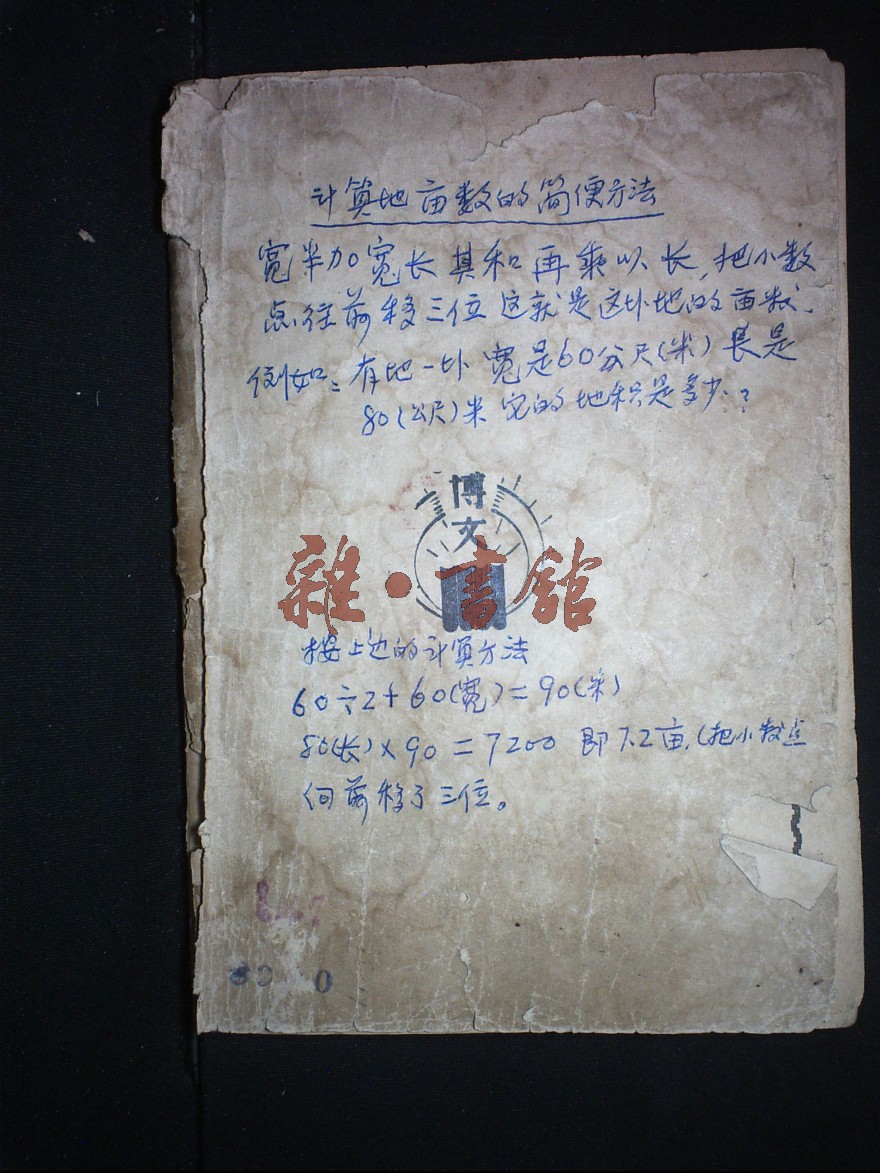 计算地亩数的简便方法
宽半加宽长其和再乘以长,把小数
点往前移三位这就是这卟地的亩数.
例如:有地一卟宽是60公尺(米)長是
80(公尺)米它的地积是多少?
博
文
雜·書館
按上边的计算方法
60÷2+60(宽)=90(米)
80(长)×90=7200 即7.2亩,(把小数点
向前移了三位。